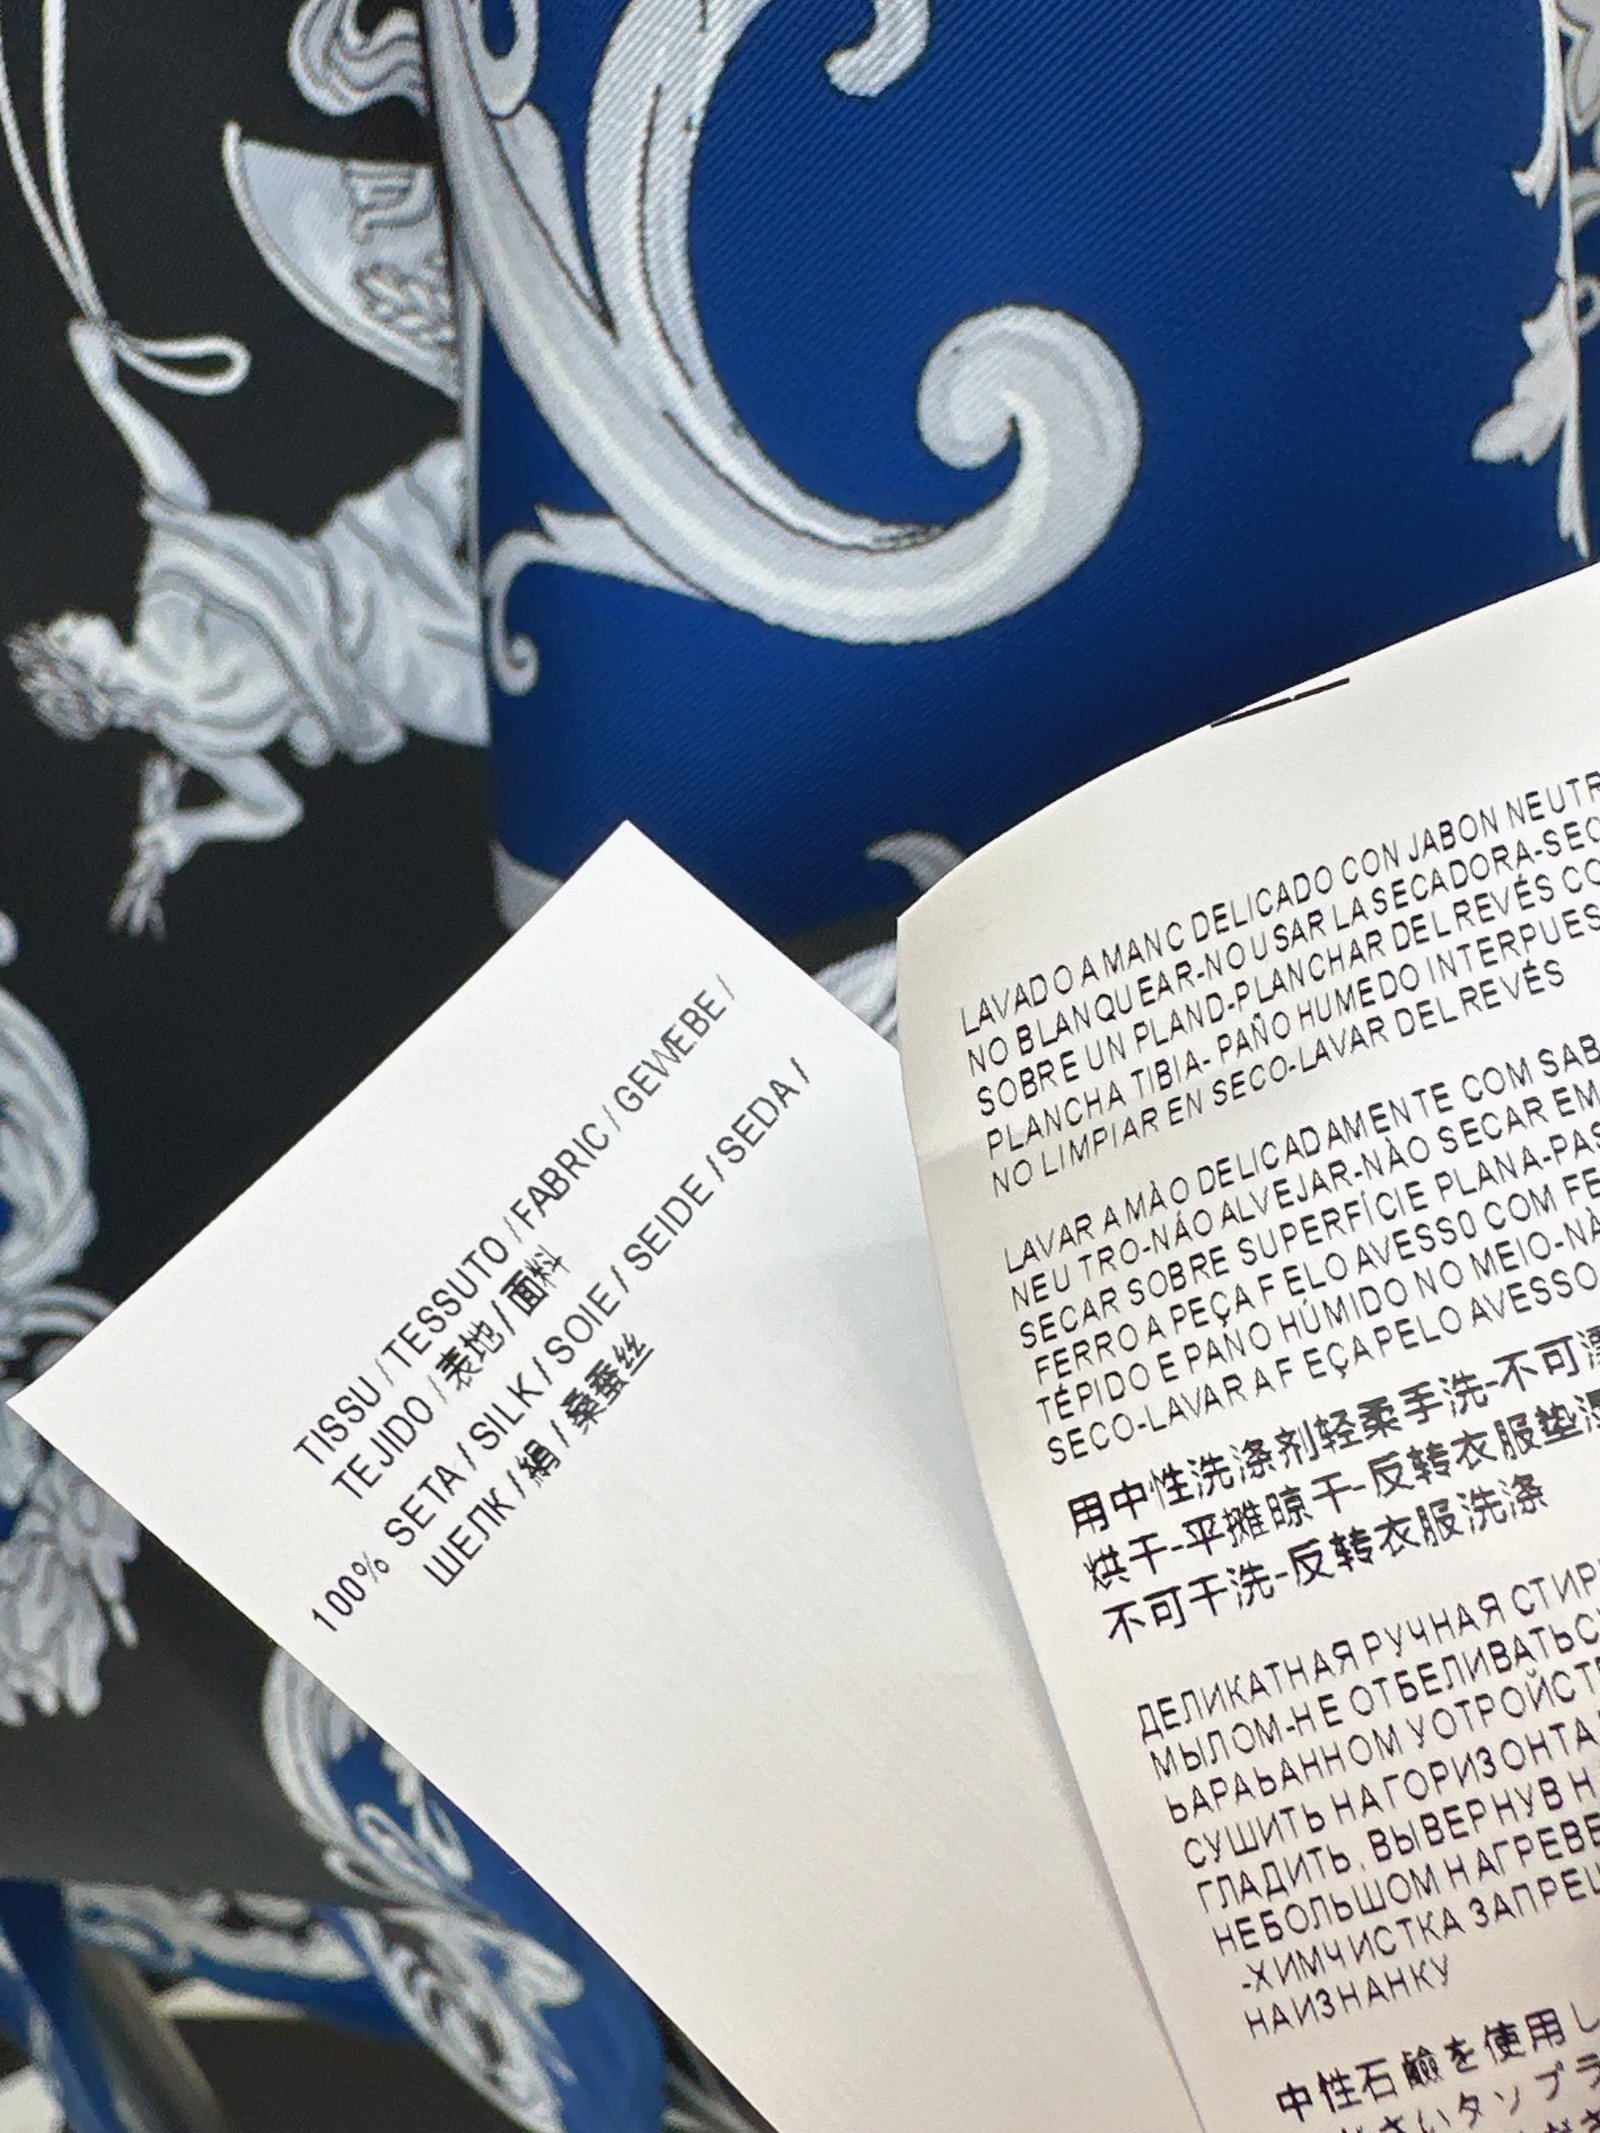 TISSU / TESSUTO / FABRIC / GEWEBE /
TEJIDO / 表地 / 面料
100% SETA / SILK / SOIE / SEIDE / SEDA /
ШЕЛК / 絹 / 桑蚕丝
LAVADO A MANC DELICADO CON JABON NEUTR
NO BLANQUEAR-NO USAR LA SECADORA-SEC
SOBRE UN PLAND-PLANCHAR DEL REVÉS CO
PLANCHA TIBIA- PAÑO HUMEDO INTERPUES
NO LIMPIAR EN SECO-LAVAR DEL REVÉS
LAVAR A MÀO DELICADAMENTE COM SAB
NEU TRO-NÁO ALVEJAR-NÀO SECAR EM
SECAR SOBRE SUPERFÍCIE PLANA-PAS
FERRO A PEÇA F ELO AVESS0 COM FE
TÉPIDO E PANO HÚMIDO NO MEIO-NÀ
SECO-LAVAR A F EÇA PELO AVESSO
用中性洗涤剂轻柔手洗-不可漂
烘干-平摊晾干-反转衣服垫湿
不可干洗-反转衣服洗涤
ДЕЛИКАТНАЯ РУЧНАЯ СТИР
МЫЛОМ-НЕ ОТБЕЛИВАТЬС
ЬАРАЬАННОМ УОТРОЙСТ
СУШИТЬ НА ГОРИЗОНТА
ГЛАДИТЬ. ВЫВЕРНУВ Н
НЕБОЛЬШОМ НАГРЕВЕ
-ХИМЧИСТКА ЗАПРЕЩ
НАИЗНАНКУ
中性石鹼を使用し
ださいタソブラ